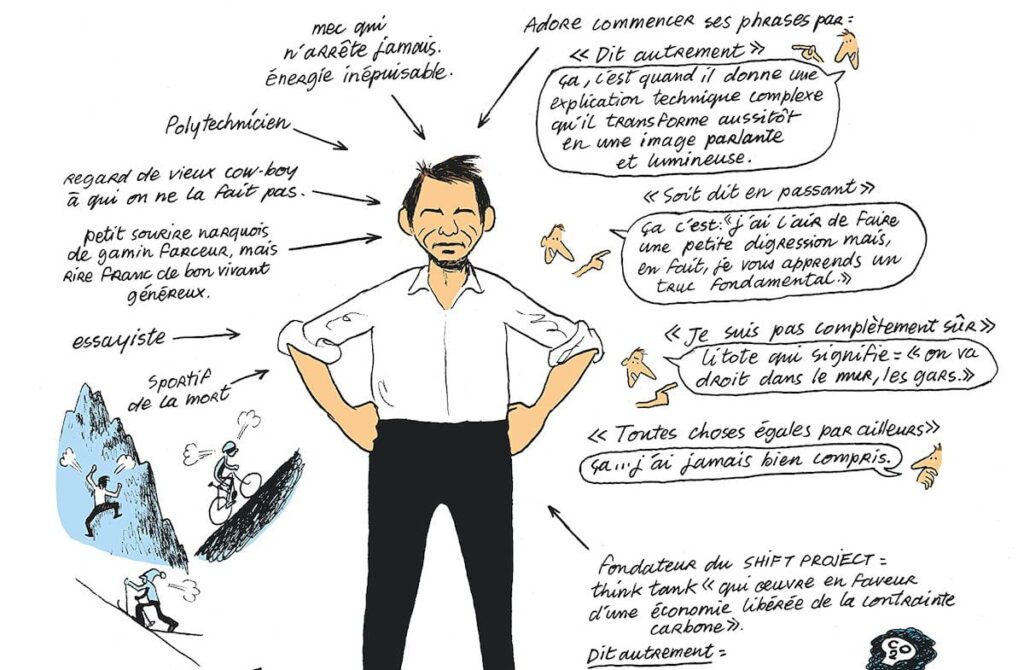 mec qui
n'arrête jamais.
énergie inépuisable.
Polytechnicien
regard de vieux cow-boy
à qui on ne la fait pas.
petit sourire narquois
de gamin farceur, mais
rire franc de bon vivant
généreux.
essayiste
sportif
de la mort
Adore commencer ses phrases par =
« Dit autrement »
ça, c'est quand il donne une
explication technique complexe
qu'il transforme aussitôt
en une image parlante
et lumineuse.
« Soit dit en passant »
ça c'est: "j'ai l'air de faire
une petite digression mais,
en fait, je vous apprends un
truc fondamental."
« Je suis pas complètement sûr »
litote qui signifie = « on va
droit dans le mur, les gars. »
« Toutes choses égales par ailleurs »
ça... j'ai jamais bien compris.
fondateur du SHIFT PROJECT =
think tank « qui œuvre en faveur
d'une économie libérée de la contrainte
carbone ».
Dit autrement =
CO2